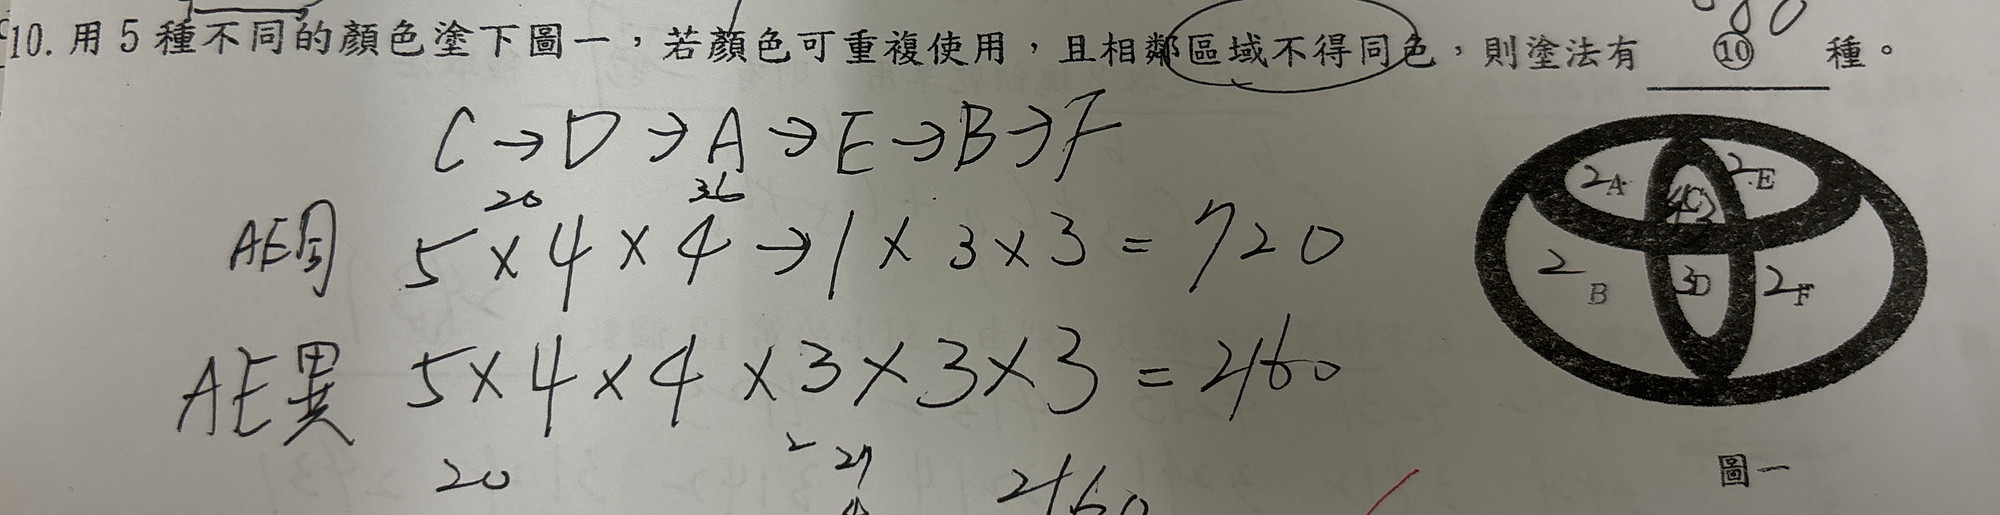 10. 用 5 種不同的顏色塗下圖一，若顏色可重複使用，且相鄰區域不得同色，則塗法有 ⑩ 種。
80
C → D → A → E → B → F
20 36
AE同 5 × 4 × 4 → 1 × 3 × 3 = 720
AE異 5 × 4 × 4 × 3 × 3 × 3 = 2160
20 2 27 2160
2 A 2 E
4 C
2 B 3 D 2 F
圖一